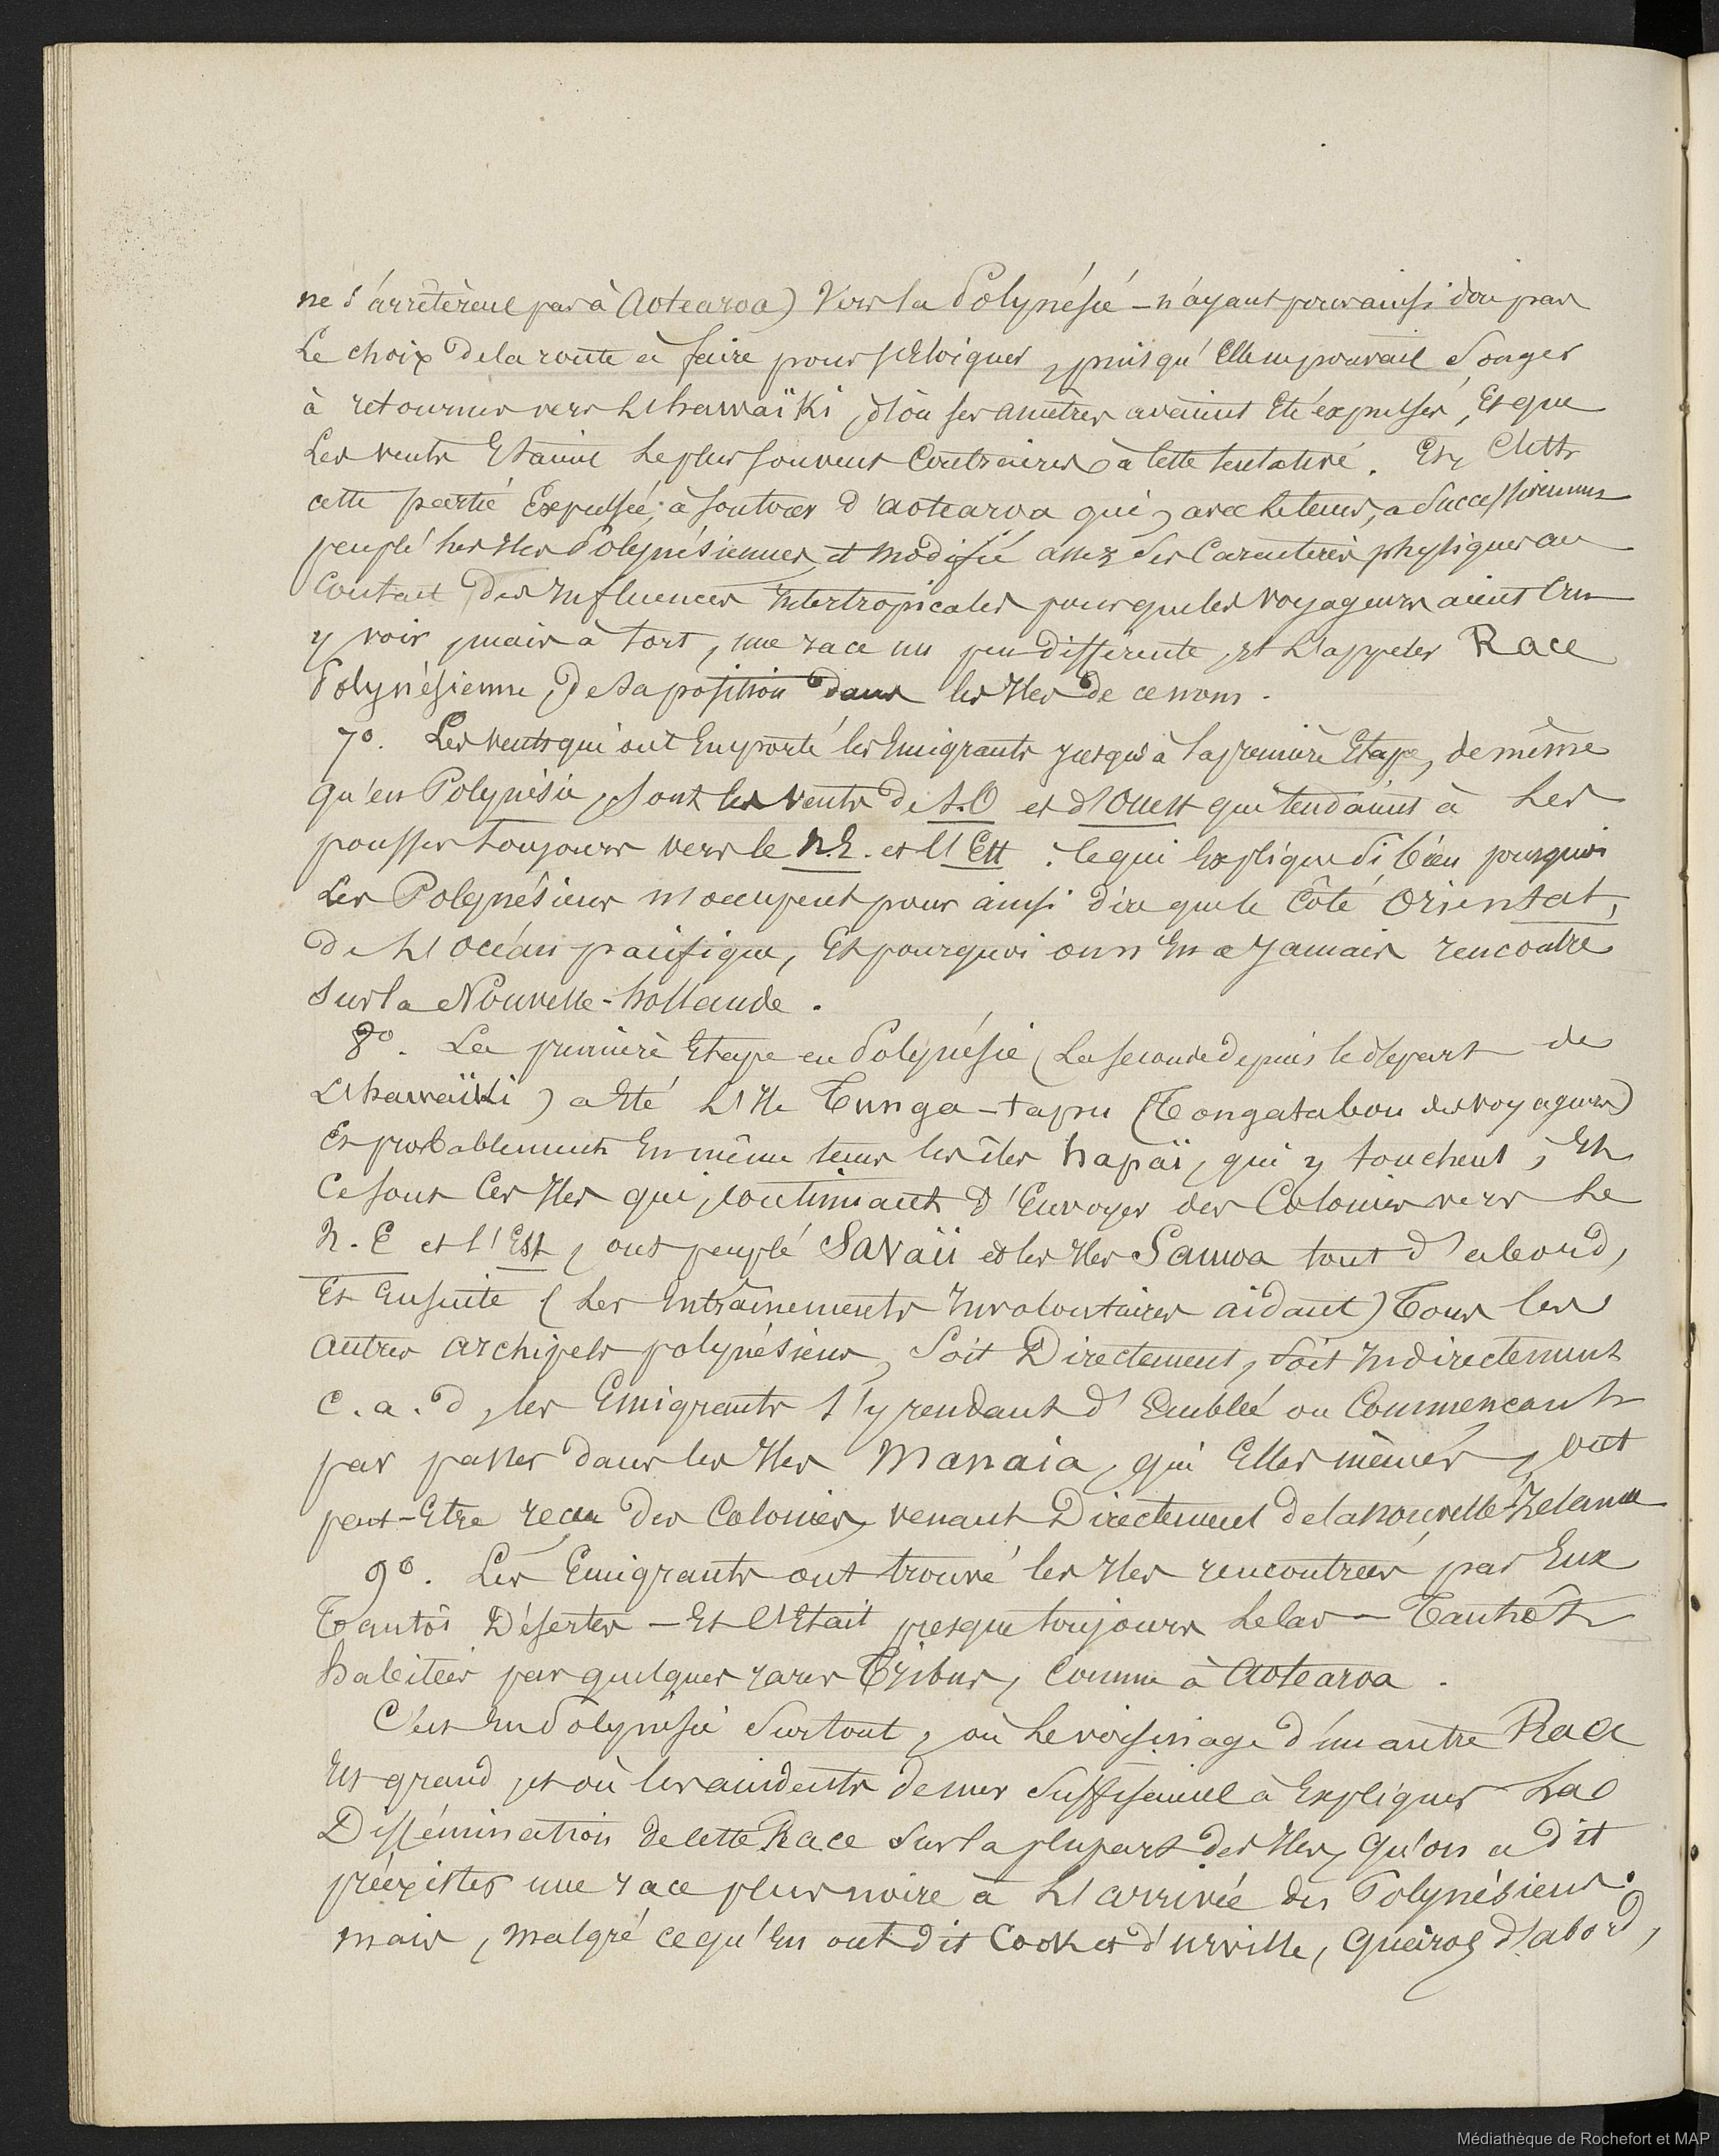 ne s'arrêtèrent pas à Aotearoa) vers la Polynésie – n'ayant pour ainsi dire pas
Le choix de la route à faire pour s'Eloigner, puisqu'Elle ne pouvait Songer
à retourner vers L'hawaïki, d'où ses ancêtres avaient Eté expulsés, Et que
Les vents Etaient le plus souvent Contraires à cette tentative. Et, C'est
cette partie Expulsée, à son tour d'aotearoa qui, avec le tems, a Successivement
peuplé les Iles Polynésiennes, et modifié assez ses Caractères physiques au
Contact des Influences Intertropicales pour que les voyageurs aient Cru
y voir, mais à tort, une race un peu différente, et L'appeler Race
Polynésienne, de sa position dans les Iles de ce nom.
7°. Les vents qui ont Emporté les Emigrants jusqu'à la première Etape, de même
qu'en Polynésie, sont les vents de S.O et d'Ouest qui tendaient à Les
pousser toujours vers le N.E. et l'Est : ce qui Explique si bien pourquoi
Les Polynésiens n'occupent pour ainsi dire que le Côté Oriental,
de L'Océan pacifique, Et pourquoi on n'En a Jamais rencontré
sur la Nouvelle-hollande.
8°. La première Etape en Polynésie (La seconde depuis le départ de
L'hawaïki) a Eté L'Ile Tunga-tapu (Tongatabou des voyageurs)
Et probablement En même tems les îles hapaï, qui y touchent ; Et
Ce sont Ces Iles qui, continuant d'Envoyer des Colonies vers Le
N. E et l'Est, ont peuplé Savaïi et les Iles Samoa tout d'abord,
Et Ensuite (Les Entraînements Involontaires aidant) Tous les
autres archipels polynésiens, Soit Directement, soit Indirectement
C. a. d, les Emigrants s'y rendant d'Emblée ou Commençant
par passer dans les Iles Manaia, qui Elles mêmes, ont
peut-Etre reçu des Colonies, venant Directement de la nouvelle-Zelande
9°. Les Emigrants ont trouvé les Iles rencontrées par Eux
Tantôt Désertes – Et C'Etait presque toujours Le Cas – Tantôt
habitées par quelques rares Tribus, Comme à Aotearoa.
C'est En Polynésie Surtout, où Le voisinage d'une autre Race
Est grand, et où les accidents de mer Suffisaient à Expliquer La
Dissémination de cette Race sur la plupart des Iles, qu'on a dit
préexister une race plus noire à L'arrivée des Polynésiens :
mais, malgré ce qu'En ont dit Cook et d'urville, Queiros d'abord,
Médiathèque de Rochefort et MAP